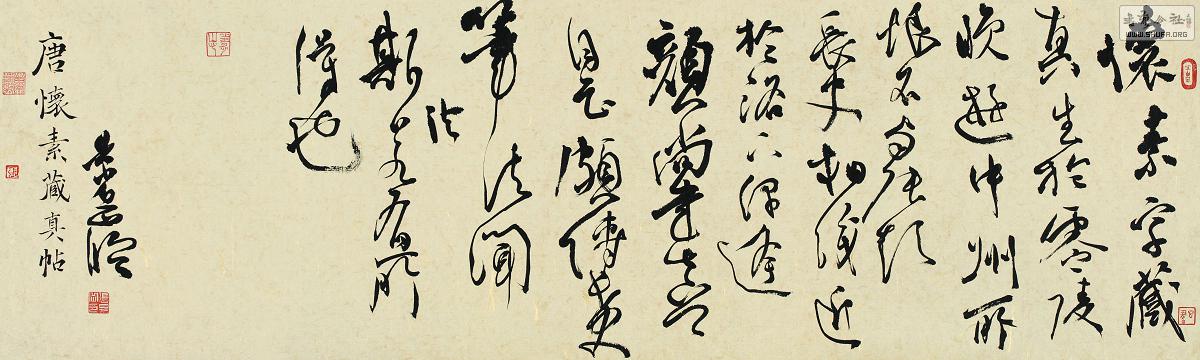 懷素字藏
真生於零陵
晚遊中州所
恨不與張顛
長史相識近
於洛下偶逢
顏尚書真卿
自云頗傳長史
筆法聞
斯法若有所
得也
臨
唐懷素藏真帖